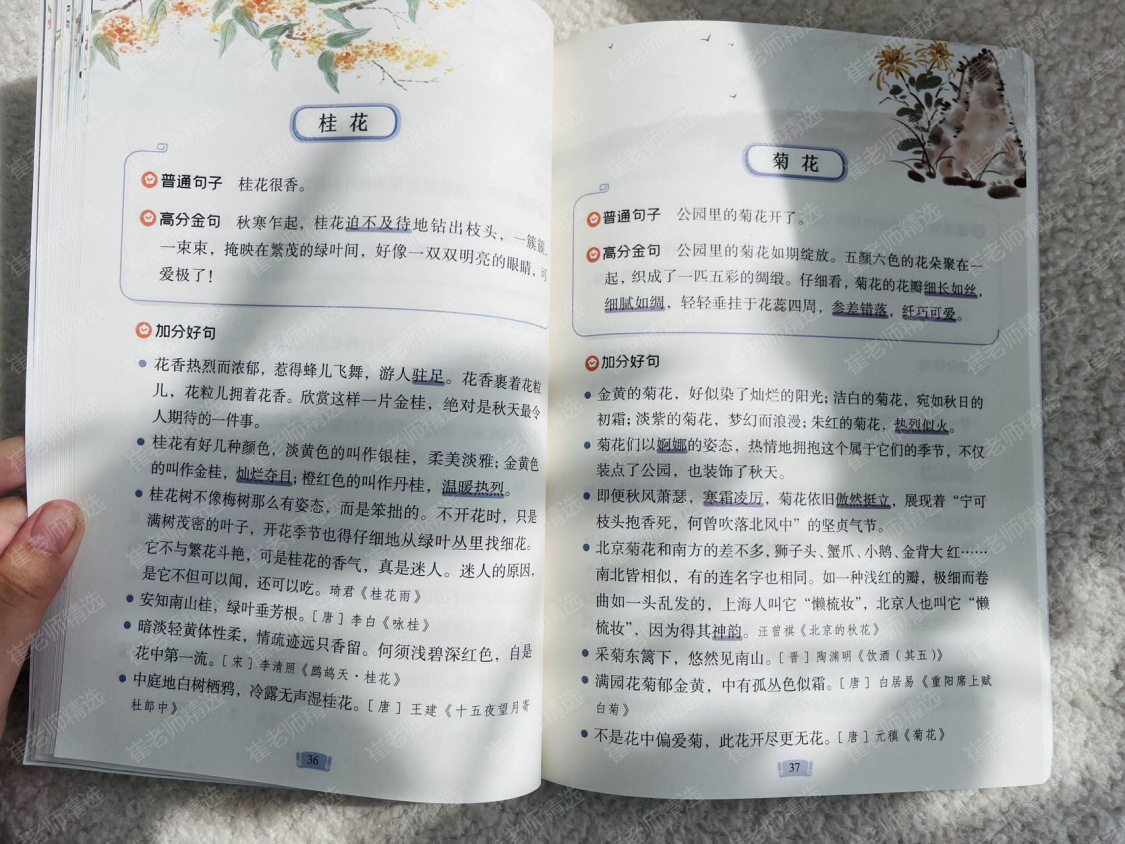 桂花
普通句子 桂花很香。
高分金句 秋寒乍起，桂花迫不及待地钻出枝头，一簇簇，
一束束，掩映在繁茂的绿叶间，好像一双双明亮的眼睛，可
爱极了！
加分好句
花香热烈而浓郁，惹得蜂儿飞舞，游人驻足。花香裹着花粒
儿，花粒儿拥着花香。欣赏这样一片金桂，绝对是秋天最令
人期待的一件事。
桂花有好几种颜色，淡黄色的叫作银桂，柔美淡雅；金黄色
的叫作金桂，灿烂夺目；橙红色的叫作丹桂，温暖热烈。
桂花树不像梅树那么有姿态，而是笨拙的。不开花时，只是
满树茂密的叶子，开花季节也得仔细地从绿叶丛里找细花。
它不与繁花斗艳，可是桂花的香气，真是迷人。迷人的原因，
是它不但可以闻，还可以吃。琦君《桂花雨》
安知南山桂，绿叶垂芳根。［唐］李白《咏桂》
暗淡轻黄体性柔，情疏迹远只香留。何须浅碧深红色，自是
花中第一流。［宋］李清照《鹧鸪天·桂花》
中庭地白树栖鸦，冷露无声湿桂花。［唐］王建《十五夜望月寄
杜郎中》
36
菊花
普通句子 公园里的菊花开了。
高分金句 公园里的菊花如期绽放。五颜六色的花朵聚在一
起，织成了一匹五彩的绸缎。仔细看，菊花的花瓣细长如丝，
细腻如绸，轻轻垂挂于花蕊四周，参差错落，纤巧可爱。
加分好句
金黄的菊花，好似染了灿烂的阳光；洁白的菊花，宛如秋日的
初霜；淡紫的菊花，梦幻而浪漫；朱红的菊花，热烈似火。
菊花们以婀娜的姿态，热情地拥抱这个属于它们的季节，不仅
装点了公园，也装饰了秋天。
即便秋风萧瑟，寒霜凌厉，菊花依旧傲然挺立，展现着“宁可
枝头抱香死，何曾吹落北风中”的坚贞气节。
北京菊花和南方的差不多，狮子头、蟹爪、小鹅、金背大红……
南北皆相似，有的连名字也相同。如一种浅红的瓣，极细而卷
曲如一头乱发的，上海人叫它“懒梳妆”，北京人也叫它“懒
梳妆”，因为得其神韵。汪曾祺《北京的秋花》
采菊东篱下，悠然见南山。［晋］陶渊明《饮酒（其五）》
满园花菊郁金黄，中有孤丛色似霜。［唐］白居易《重阳席上赋
白菊》
不是花中偏爱菊，此花开尽更无花。［唐］元稹《菊花》
37
崔老师精选